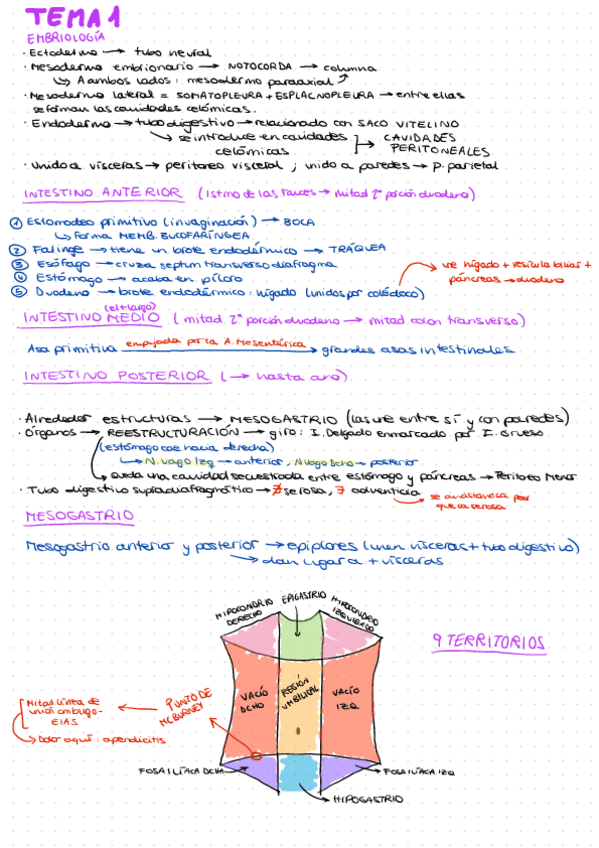 TEMA 1
EMBRIOLOGÍA
· Ectodermo → tubo neural
· Mesodermo embrionario → NOTOCORDA → columna
↳ A ambos lados: mesodermo paraaxial
· Mesodermo lateral = SOMATOPLEURA + ESPLACNOPLEURA → entre ellas
se forman las cavidades celómicas.
· Endodermo → tubo digestivo → relacionado con SACO VITELINO
→ se introduce en cavidades celómicas → CAVIDADES PERITONEALES
· Unido a vísceras → peritoneo visceral ; unido a paredes → p. parietal
INTESTINO ANTERIOR (Istmo de las fauces → mitad 2ª porción duodeno)
① Estomodeo primitivo (invaginación) → BOCA
↳ forma MEMB. BUCOFARÍNGEA
② Faringe → tiene un brote endodérmico → TRÁQUEA
③ Esófago → cruza septum transverso diafragma
④ Estómago → acaba en píloro
⑤ Duodeno → brote endodérmico: hígado (unidos por colédoco)
une hígado + vesícula biliar +
páncreas → duodeno
(el + largo)
INTESTINO MEDIO (mitad 2ª porción duodeno → mitad colon transverso)
Asa primitiva empujada por la A. Mesentérica → grandes asas intestinales
INTESTINO POSTERIOR (→ hasta ano)
· Alrededor estructuras → MESOGASTRIO (las une entre sí y con paredes)
· Órganos → REESTRUCTURACIÓN → giro: I. Delgado enmarcado por I. Grueso
(estómago cae hacia derecha)
↳ N. vago Izq → anterior, N. vago Dcho → posterior
Queda una cavidad secuestrada entre estómago y páncreas → Peritoneo Menor
· Tubo digestivo supradiafragmático → ∄ serosa, ∃ adventicia
se anastomosa por
que la serosa
MESOGASTRIO
Mesogastrio anterior y posterior → epiplones (unen vísceras + tubo digestivo)
→ dan lugar a + vísceras
HIPOCONDRIO DERECHO
EPIGASTRIO
HIPOCONDRIO IZQUIERDO
9 TERRITORIOS
VACÍO DCHO
REGIÓN UMBILICAL
VACÍO IZQ
PUNTO DE MCBURNEY
Mitad línea de
unión ombligo-
EIAS
→ Dolor aquí: apendicitis
FOSA ILÍACA DCHA
FOSA ILÍACA IZQ
HIPOGASTRIO